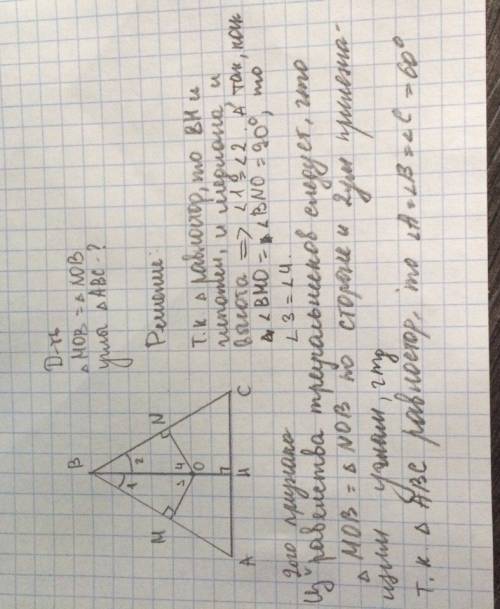 Д-ть
△ MOB = △ NOB
углы △ABC - ?
Решение:
B
1 2
M N
3 4
O
A H C
Т.к △ равностор, то BH и
и медиана и
высота => ∠1 = ∠2. А так, как
∠BMO = ∠BNO = 90°, то
∠3 = ∠4.
2ого признака
Из равенства треугольников следует, что
△ MOB = △ NOB по стороне и 2ум прилежа-
щим углам,
Т.к △ ABC равностор, то ∠A = ∠B = ∠C = 60°